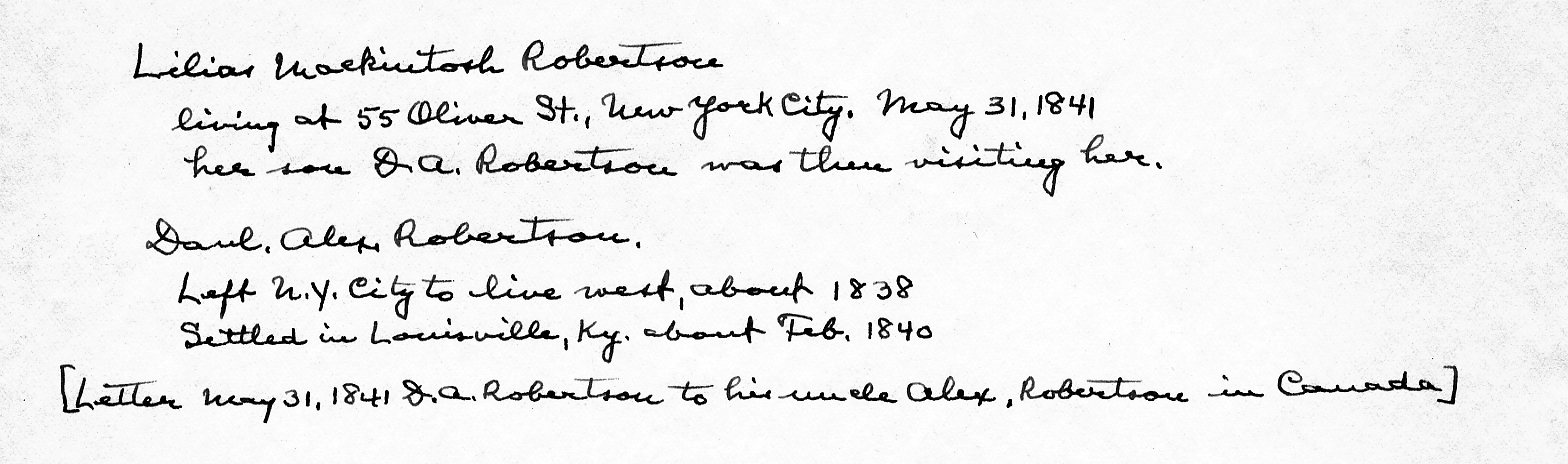 Lilias Mackintosh Robertson
living at 55 Oliver St., New York City. May 31, 1841
her son D. A. Robertson was then visiting her.
Danl. Alex. Robertson.
Left N.Y. City to live west, about 1838
Settled in Louisville, Ky. about Feb. 1840
[Letter May 31, 1841 D. A. Robertson to his uncle Alex, Robertson in Canada]